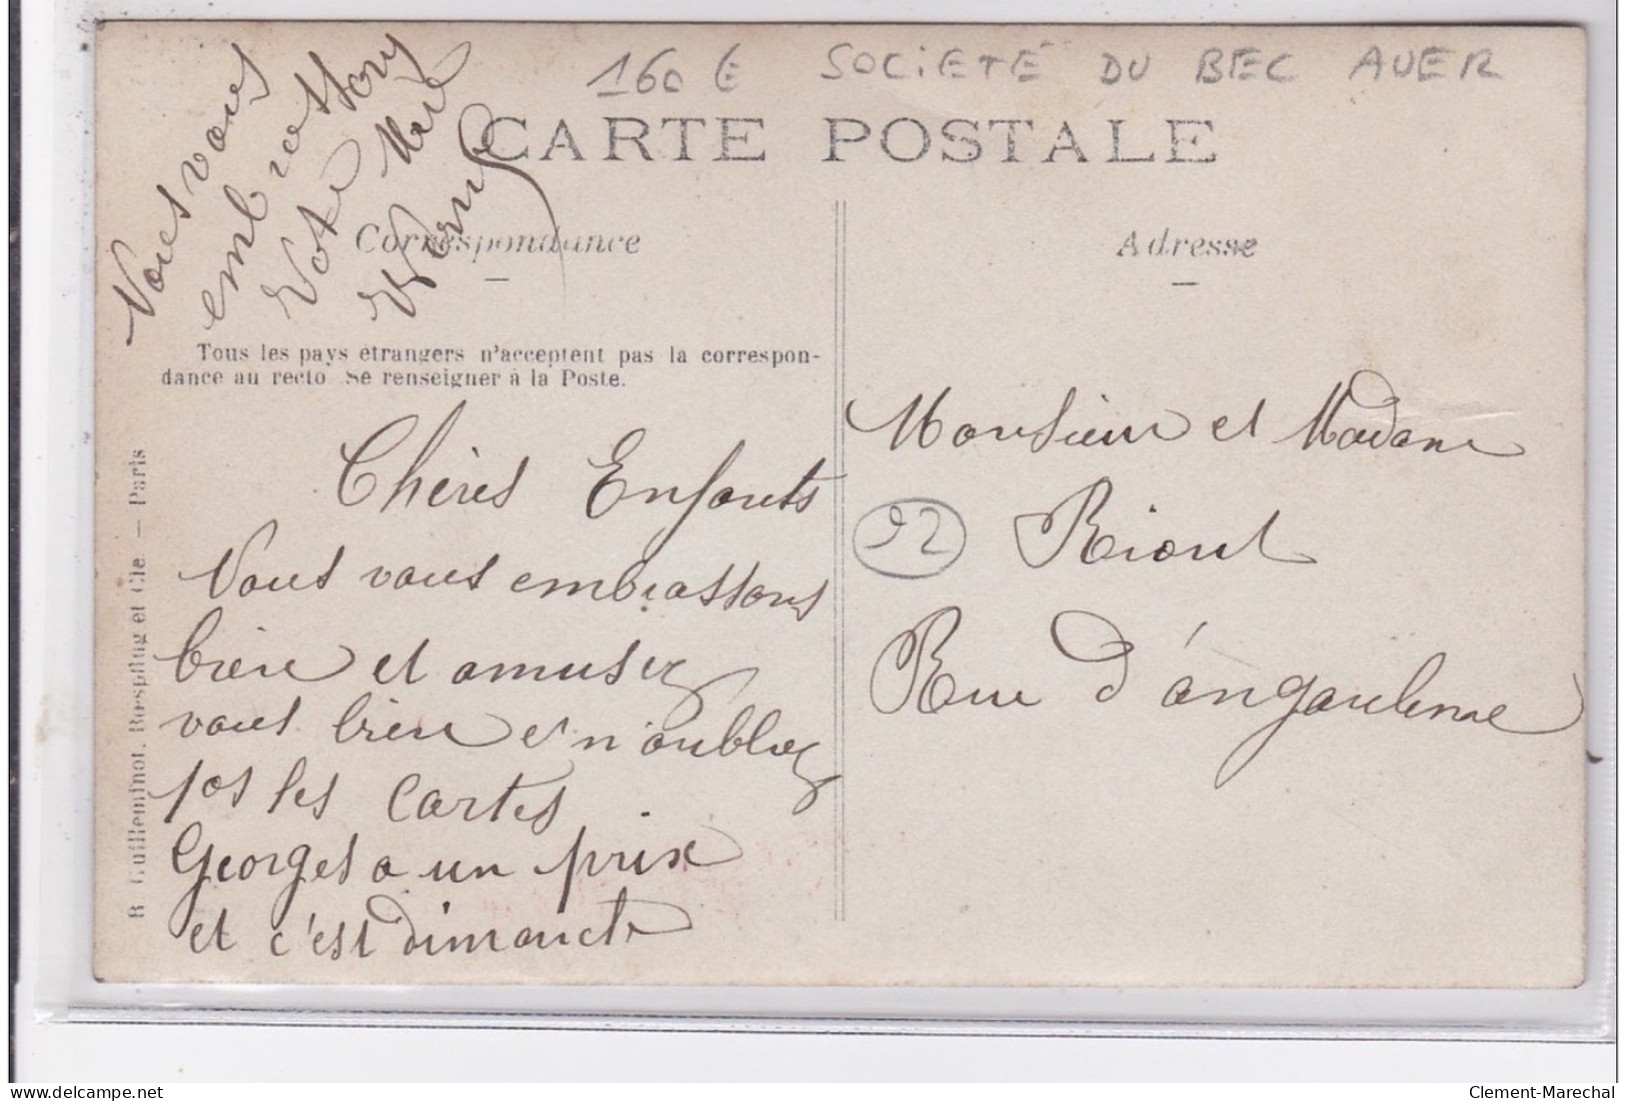 160 € SOCIETE DU BEC AUER
CARTE POSTALE
Correspondance
Adresse
Nous vous
embrassons
Votre Mère
Tous les pays étrangers n'acceptent pas la correspon-
dance au recto Se renseigner à la Poste.
Chères Enfants
Nous vous embrassons
bien et amusez
vous bien et n'oubliez
pas les Cartes
Georges a un prix
et c'est dimanche
Monsieur et Madame
92
Rioul
Rue d'angouleme
R Guilleminot, Bœspflug et Cie — Paris
www.delcampe.net
Clement-Marechal